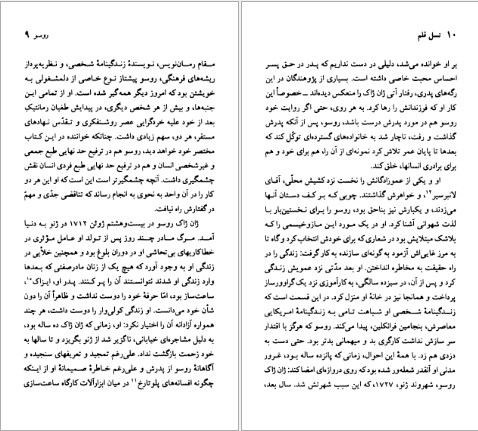 روسو ۹
مقام رمان‌نویس، نویسندهٔ زندگینامهٔ شخصی، و نظریه‌پرداز
ریشه‌های فرهنگی، روسو پیشتاز نوع خاصی از دلمشغولی به
خویشتن بود که امروز دیگر همه‌گیر شده است. او از تمامی این
جنبه‌ها، و بیش از هر شخص دیگری، در پیدایش طغیان رمانتیک
بعد از خود علیه خردگرایی عصر روشنفکری و تقدّس نهادهای
مستقر، هر دو، سهم زیادی داشت. چنانکه خواننده در این کتاب
مختصر خود خواهد دید، روسو هم در ترفیع حد نهایی طبع جمعی
و غیرشخصی انسان و هم در ترفیع حد نهایی طبع فردی انسان نقش
چشمگیری داشت. آنچه چشمگیرتر است این است که او این هر دو
کار را در آن واحد به نحوی به انجام رساند که تناقضی جدّی و مهمّ
در گفتارش راه نیافت.
ژان ژاک روسو در بیست‌وهشتم ژوئن ۱۷۱۲ در ژنو به دنیا
آمد. مرگ مادر چند روز پس از تولد او عامل مؤثری در
خطاکاریهای بی‌تحاشی او در دوران بلوغ بود و همچنین خلأیی در
زندگی او به وجود آورد که هیچ یک از زنان مادرصفتی که بعدها
وارد زندگی او شدند نتوانستند آن را پر کنند. پدر او، ایزاک۱۰،
ساعت‌ساز بود، امّا حرفهٔ خود را دوست نداشت و ظاهراً آن را دون
شأن خود می‌دانست. او زندگی کولی‌وار را دوست داشت، هر چند
همواره آزادانه آن را اختیار نکرد: او، زمانی که ژان ژاک ده ساله بود،
به دلیل مشاجره‌ای خیابانی، ناگزیر شد از ژنو بگریزد و تا سالها به
خود زحمت بازگشت نداد. علی‌رغم تمجید و تعریفهای سنجیده و
آگاهانهٔ روسو از پدرش و علی‌رغم خاطرهٔ صمیمانهٔ او از اینکه
چگونه افسانه‌های پلوتارخ۱۱ در میان ابزارآلات کارگاه ساعت‌سازی
۱۰ نسل قلم
بر او خوانده می‌شد، دلیلی در دست نداریم که پدر در حق پسر
احساس محبت خاصی داشته است. بسیاری از پژوهندگان در این
رگه‌های پدری، رفتار آتی ژان ژاک را منعکس دیده‌اند ــ خصوصاً این
کار او که فرزندانش را رها کرد. به هر روی، حتی اگر روایت خود
روسو هم در مورد پدرش درست باشد، روسو، پس از آنکه پدرش
گذاشت و رفت، ناچار شد به خانواده‌های گسترده‌ای توکّل کند که
بعدها تا پایان عمر تلاش کرد نمونه‌ای از آن راه، هم برای خود و هم
برای برادری انسانها، خلق کند.
او و یکی از عموزادگانش را نخست نزد کشیش محلّی، آقای
لانبرسیر۱۲، و خواهرش گذاشتند. چوبی که بر کف دستان آنها
می‌زدند، و یکبارش نیز بناحق بود، روسو را برای نخستین‌بار با
لذت شهوانی آشنا کرد. او در یک مورد این مازوخیسمی را که
بلاشک مبتلایش بود در شعاری که برای خودش انتخاب کرد و گاه تا
به مرز غایی‌اش آزمود به گونه‌ای سازنده به کار گرفت: زندگی را در
راه حقیقت به مخاطره انداختن. او بعد مدّتی نزد عمویش زندگی
کرد و پس از آن، در سیزده سالگی، به کارآموزی نزد یک گراوورساز
پرداخت و همانجا نیز در خانهٔ او منزل کرد. در این قسمت است که
زندگینامهٔ شخصی او شباهت تامی به زندگینامهٔ امریکایی
معاصرش، بنجامین فرانکلین، پیدا می‌کند. روسو که هرگز با اقتدار
سر سازش نداشت کارگری بد و میهمانی بدتر بود. حتی دست به
دزدی هم زد. با همهٔ این احوال، زمانی که پانزده ساله بود، غرور
مدنی او آنقدر شعله‌ور شده بود که روی دروازه‌ای امضا کند: ژان ژاک
روسو، شهروند ژنو، ۱۷۲۷، که این سبب شهرتش شد. سال بعد،